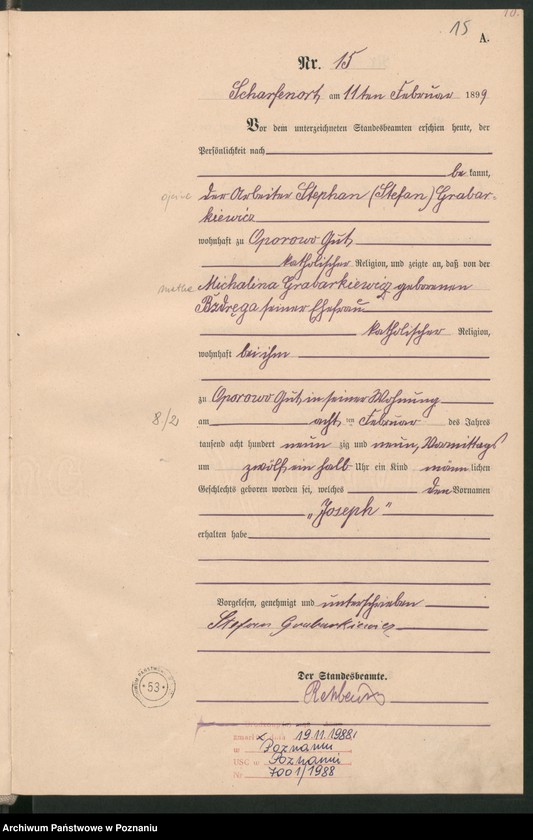 15
A.
Nr. 15
Scharfenort, am 11ten Februar 1899
Vor dem unterzeichneten Standesbeamten erschien heute, der
Persönlichkeit nach
be kannt,
der Arbeiter Stephan (Stefan) Grabar-
kiewicz
wohnhaft zu Oporowo Gut,
katholischer Religion, und zeigte an, daß von der
Michalina Grabarkiewicz geborenen
Bzdręga seiner Ehefrau
katholischer Religion,
wohnhaft bei ihm
zu Oporowo Gut, in seiner Wohnung
8/2
am acht ten Februar des Jahres
tausend acht hundert neun zig und neun, Vormittags
um zwölf ein halb Uhr ein Kind männlichen
Geschlechts geboren worden sei, welches den Vornamen
„Joseph"
erhalten habe
Vorgelesen, genehmigt und unterschrieben
Stefan Grabarkiewicz
Der Standesbeamte.
53
19.11.1988
w Poznaniu
USC w Poznaniu
Nr 7001/1988
Archiwum Państwowe w Poznaniu